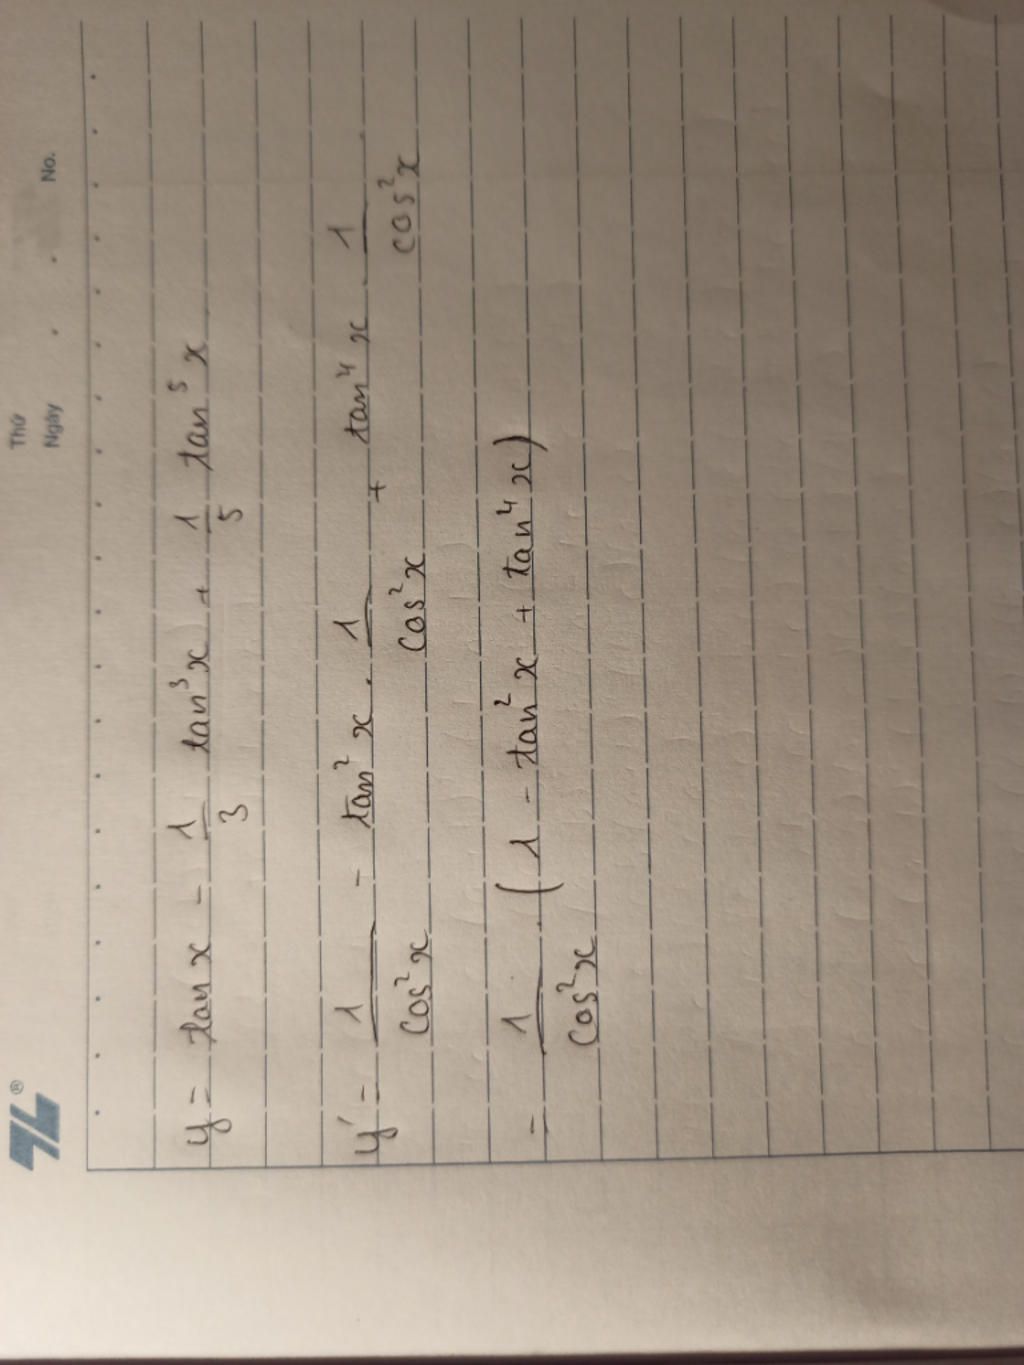 ®
Thứ
Ngày . . No.
y = tan x - 1/3 tan³x + 1/5 tan⁵ x
y' = 1/cos²x - tan² x . 1/cos²x + tan⁴ x 1/cos²x
= 1/cos²x . (1 - tan² x + tan⁴ x)